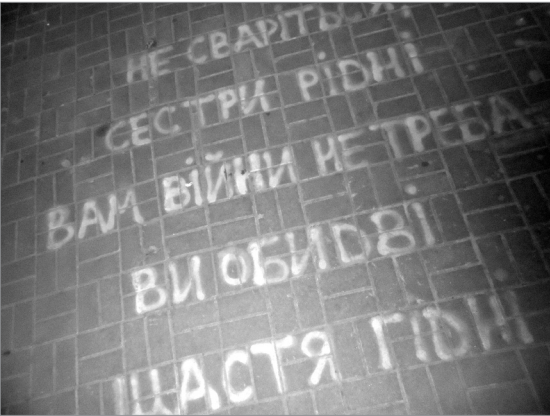 НЕ СВАРІТЬСЯ,
СЕСТРИ РІДНІ
ВАМ ВІЙНИ НЕ ТРЕБА
ВИ ОБИДВІ
ЩАСТЯ ГІДНІ